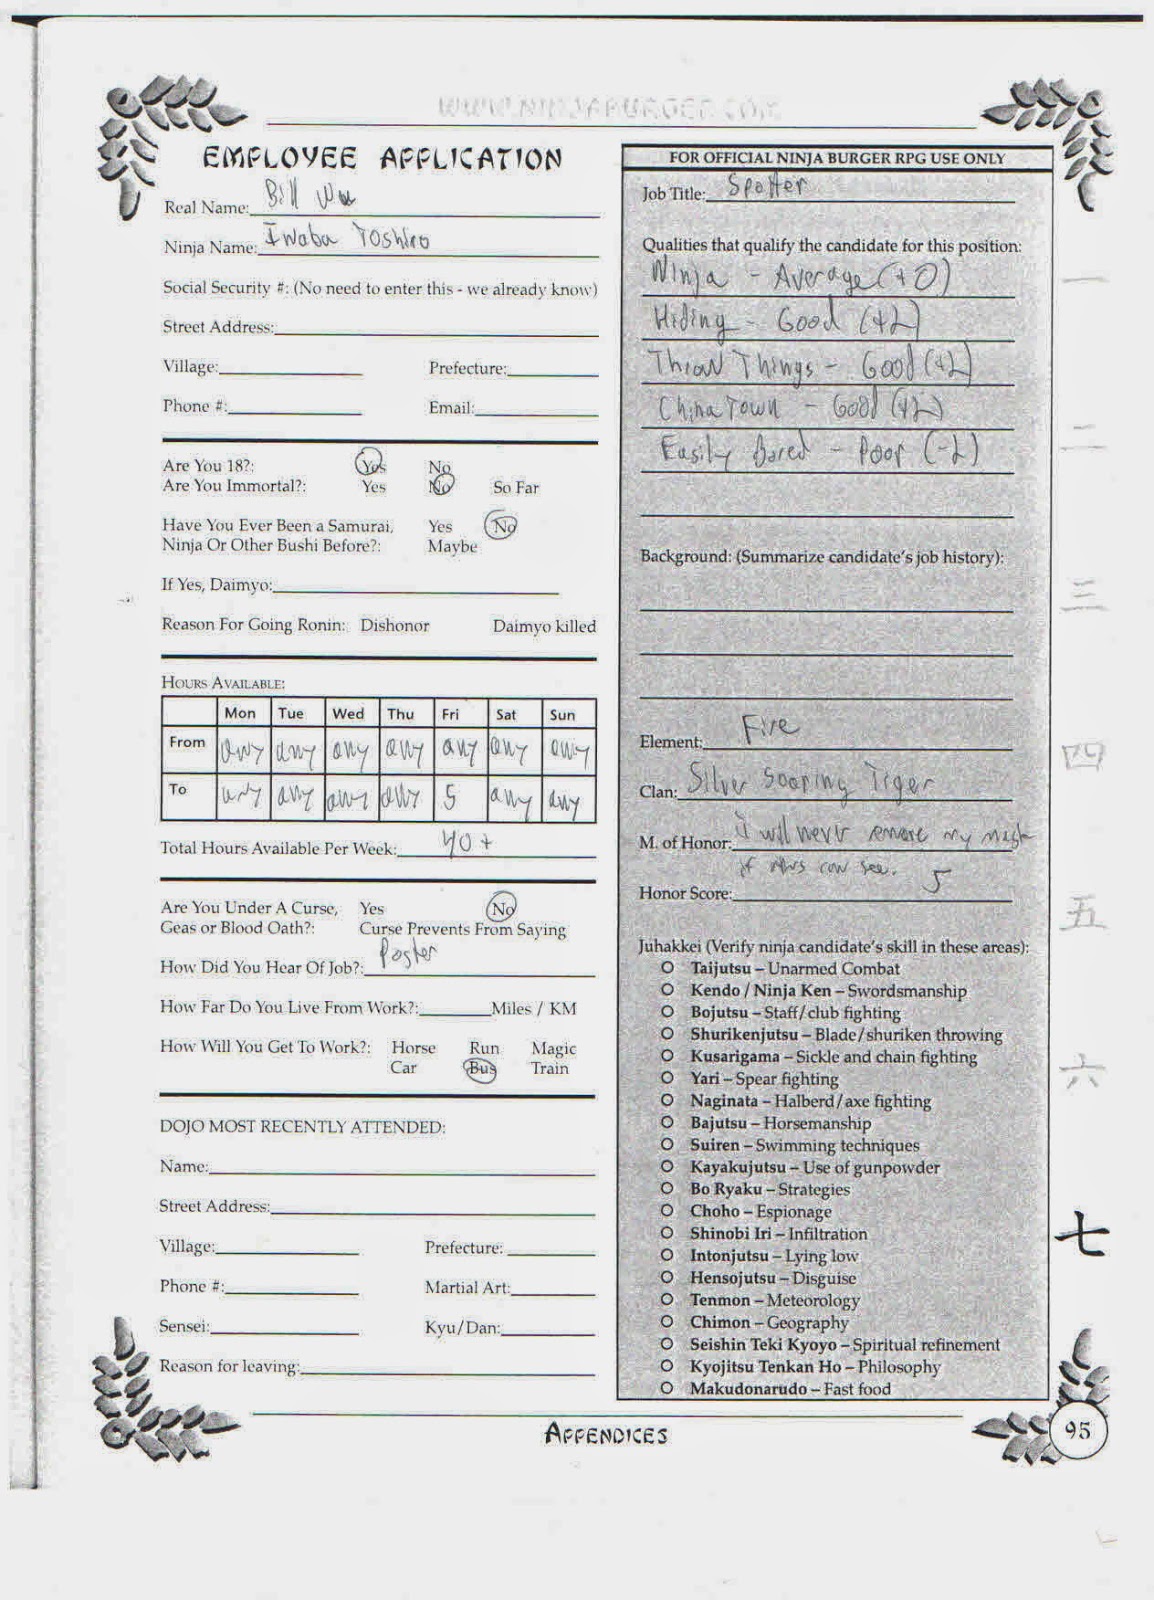 WWW.NINJABURGER.COM
EMPLOYEE APPLICATION
Real Name: Bill Wu
Ninja Name: Iwaba Toshiro
Social Security #: (No need to enter this - we already know)
Street Address:
Village: Prefecture:
Phone #: Email:
Are You 18?: Yes No
Are You Immortal?: Yes No So Far
Have You Ever Been a Samurai, Yes No
Ninja Or Other Bushi Before?: Maybe
If Yes, Daimyo:
Reason For Going Ronin: Dishonor Daimyo killed
HOURS AVAILABLE:
Mon Tue Wed Thu Fri Sat Sun
From any any any any any any any
To any any any any 5 any any
Total Hours Available Per Week: 40+
Are You Under A Curse, Yes No
Geas or Blood Oath?: Curse Prevents From Saying
How Did You Hear Of Job?: Poster
How Far Do You Live From Work?: Miles / KM
How Will You Get To Work?: Horse Run Magic
Car Bus Train
DOJO MOST RECENTLY ATTENDED:
Name:
Street Address:
Village: Prefecture:
Phone #: Martial Art:
Sensei: Kyu/Dan:
Reason for leaving:
FOR OFFICIAL NINJA BURGER RPG USE ONLY
Job Title: Spotter
Qualities that qualify the candidate for this position:
Ninja - Average (+0)
Hiding - Good (+2)
Throw Things - Good (+2)
China Town - Good (+2)
Easily Bored - Poor (-2)
Background: (Summarize candidate's job history):
Element: Fire
Clan: Silver Soaring Tiger
M. of Honor: I will never remove my mask
if others can see.
Honor Score: 5
Juhakkei (Verify ninja candidate's skill in these areas):
Taijutsu – Unarmed Combat
Kendo / Ninja Ken – Swordsmanship
Bojutsu – Staff/club fighting
Shurikenjutsu – Blade/shuriken throwing
Kusarigama – Sickle and chain fighting
Yari – Spear fighting
Naginata – Halberd/axe fighting
Bajutsu – Horsemanship
Suiren – Swimming techniques
Kayakujutsu – Use of gunpowder
Bo Ryaku – Strategies
Choho – Espionage
Shinobi Iri – Infiltration
Intonjutsu – Lying low
Hensojutsu – Disguise
Tenmon – Meteorology
Chimon – Geography
Seishin Teki Kyoyo – Spiritual refinement
Kyojitsu Tenkan Ho – Philosophy
Makudonarudo – Fast food
一
二
三
四
五
六
七
APPENDICES
95